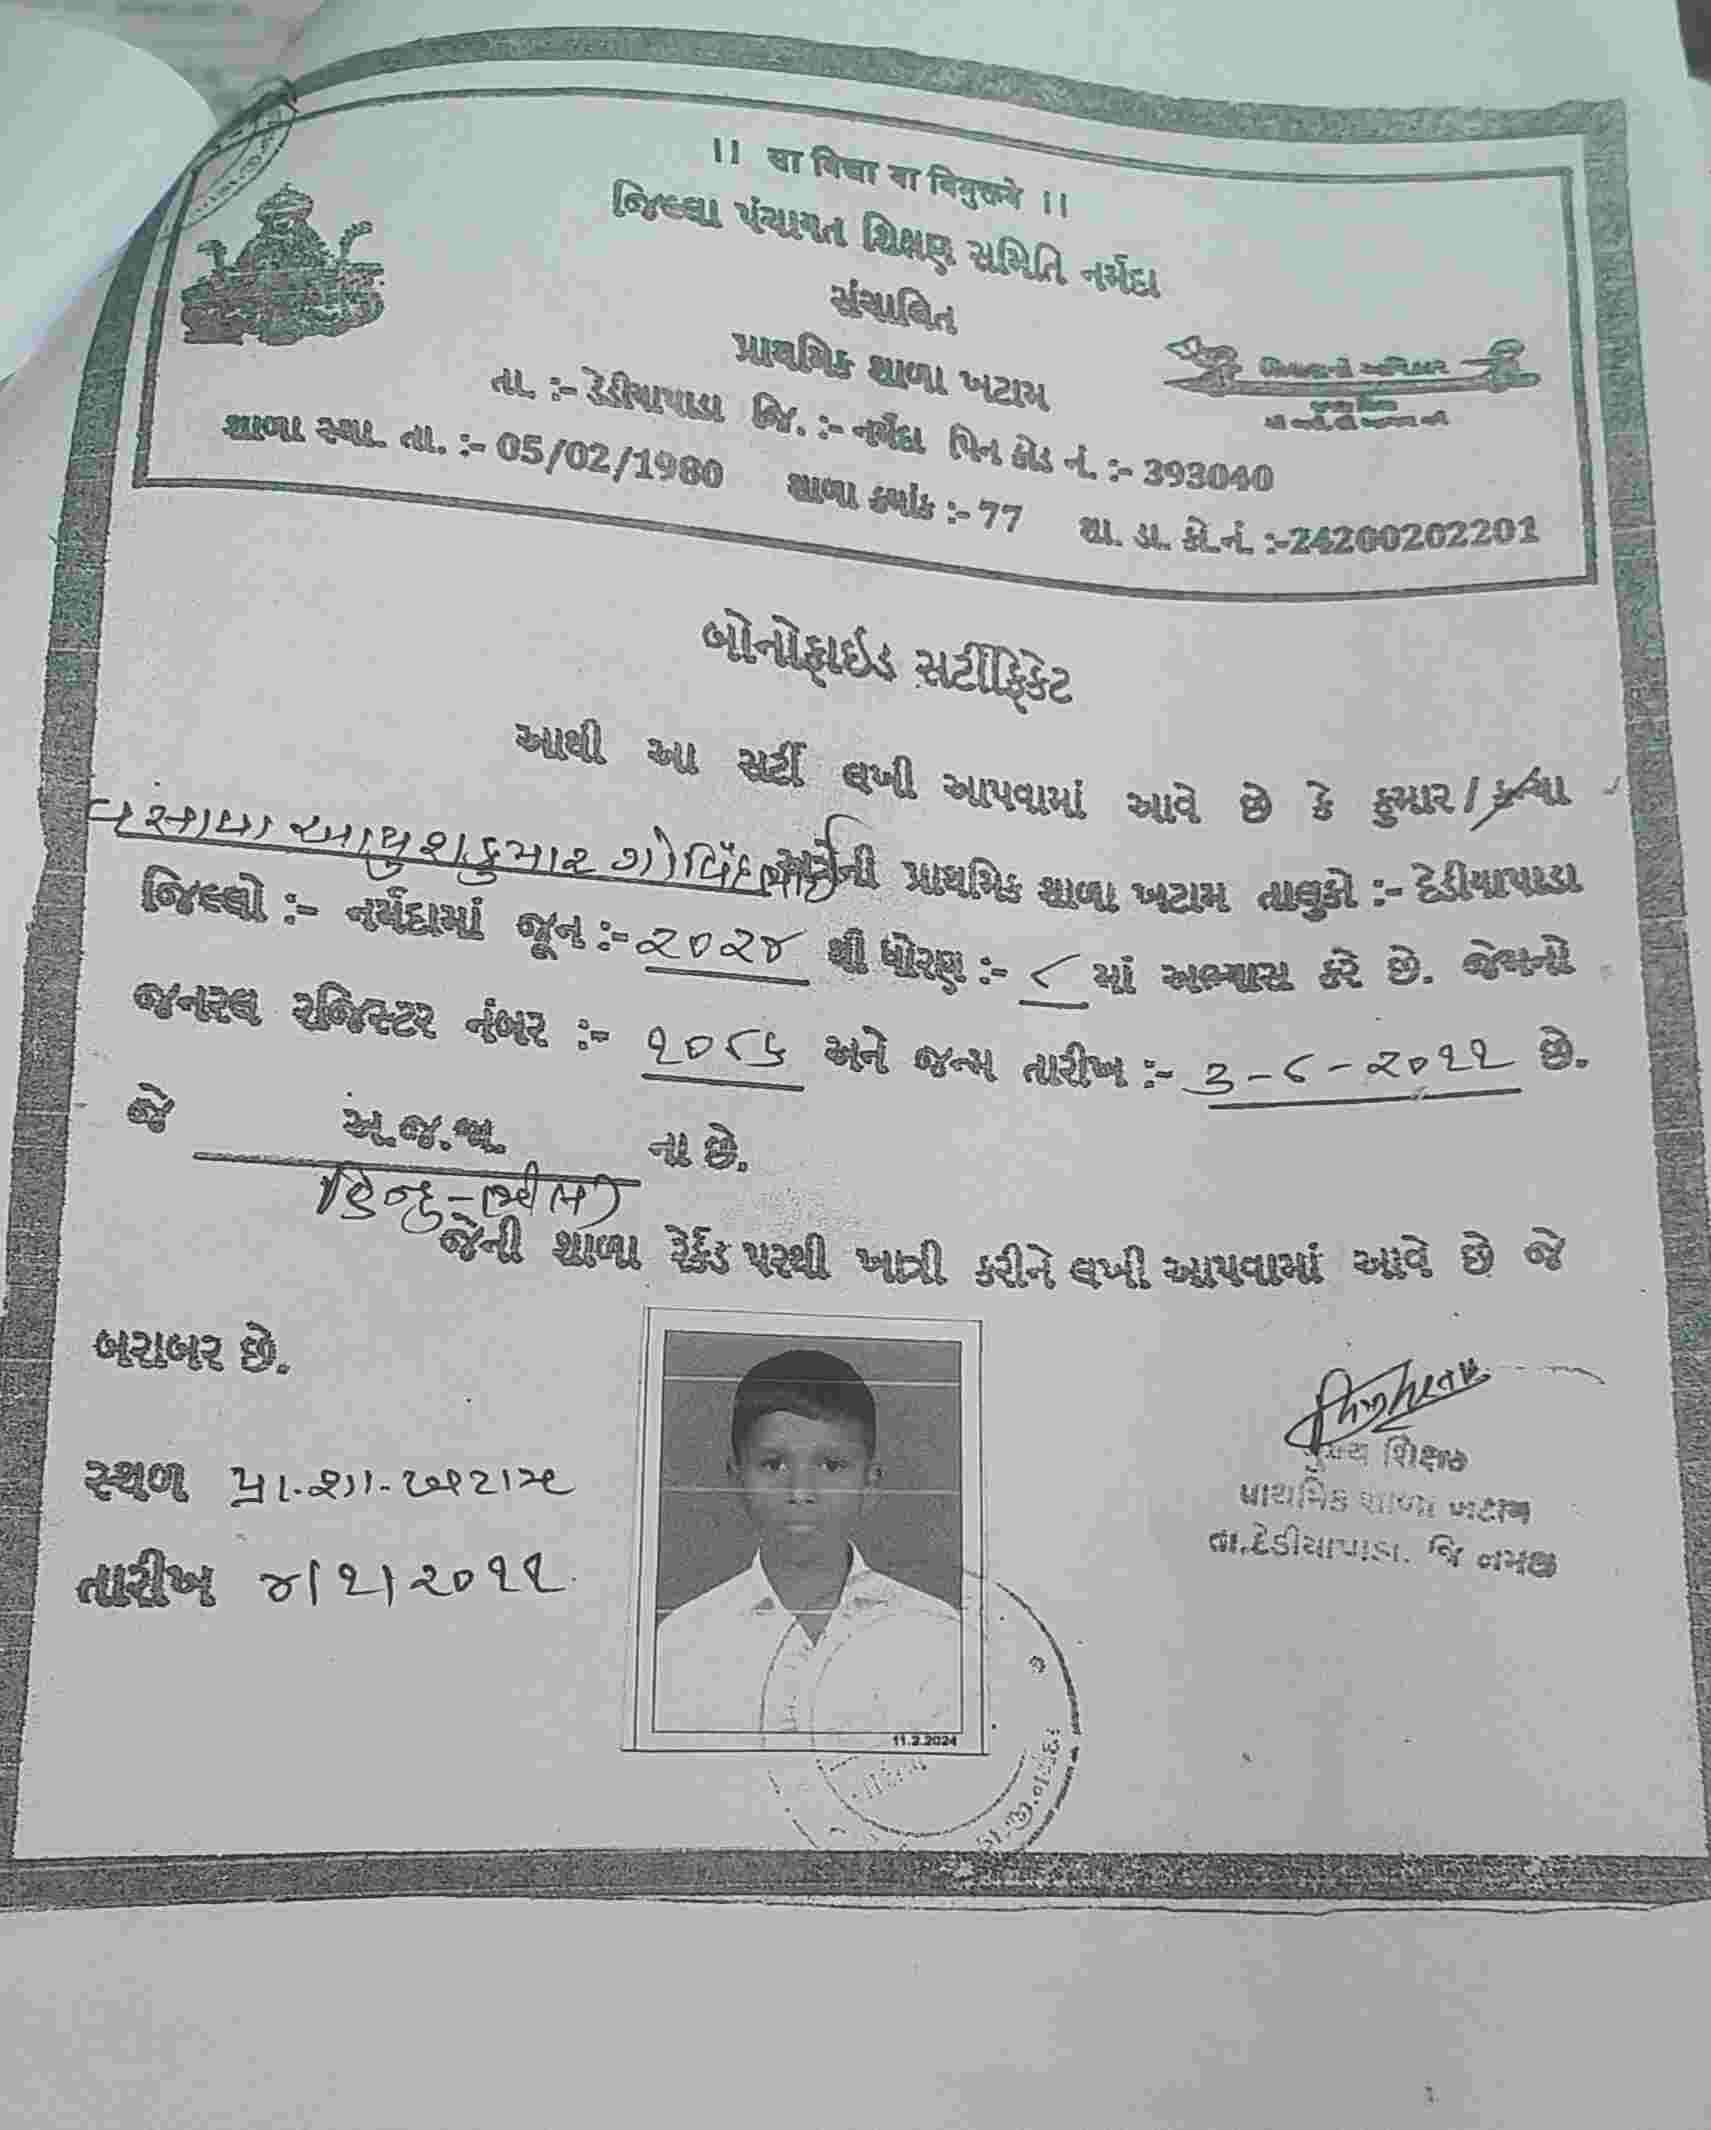 ।। या विद्या या विमुक्तये ।।
જિલ્લા પંચાયત શિક્ષણ સમિતિ નર્મદા
સંચાલિત
પ્રાથમિક શાળા ખટામ
તા. :- દેડીયાપાડા જિ. :- નર્મદા પિન કોડ નં. :- 393040
શાળા સ્થા. તા. :- 05/02/1980 શાળા ક્રમાંક :- 77 શા. ડા. કો.નં. :-24200202201
બોનોફાઈડ સર્ટીફિકેટ
આથી આ સર્ટી લખી આપવામાં આવે છે કે કુમાર / કન્યા
વસાવા આયુશકુમાર ગોવિંદભાઈ અત્રેની પ્રાથમિક શાળા ખટામ તાલુકો :- દેડીયાપાડા
જિલ્લો :- નર્મદામાં જૂન :- ૨૦૨૪ થી ધોરણ :- ૮ માં અભ્યાસ કરે છે. જેમનો
જનરલ રજિસ્ટર નંબર :- ૧૦૮૬ અને જન્મ તારીખ :- ૩-૮-૨૦૧૧ છે.
જે અ.જ.જા. ના છે.
હિન્દુ-(ભીલ)
જેની શાળા રેર્કડ પરથી ખાત્રી કરીને લખી આપવામાં આવે છે જે
બરાબર છે.
સ્થળ પ્રા.શા.ખટામ
મુખ્ય શિક્ષક
પ્રાથમિક શાળા ખટામ
તા.દેડીયાપાડા. જિ નર્મદા
તારીખ ૪/૨/૨૦૧૧
11.2.2024